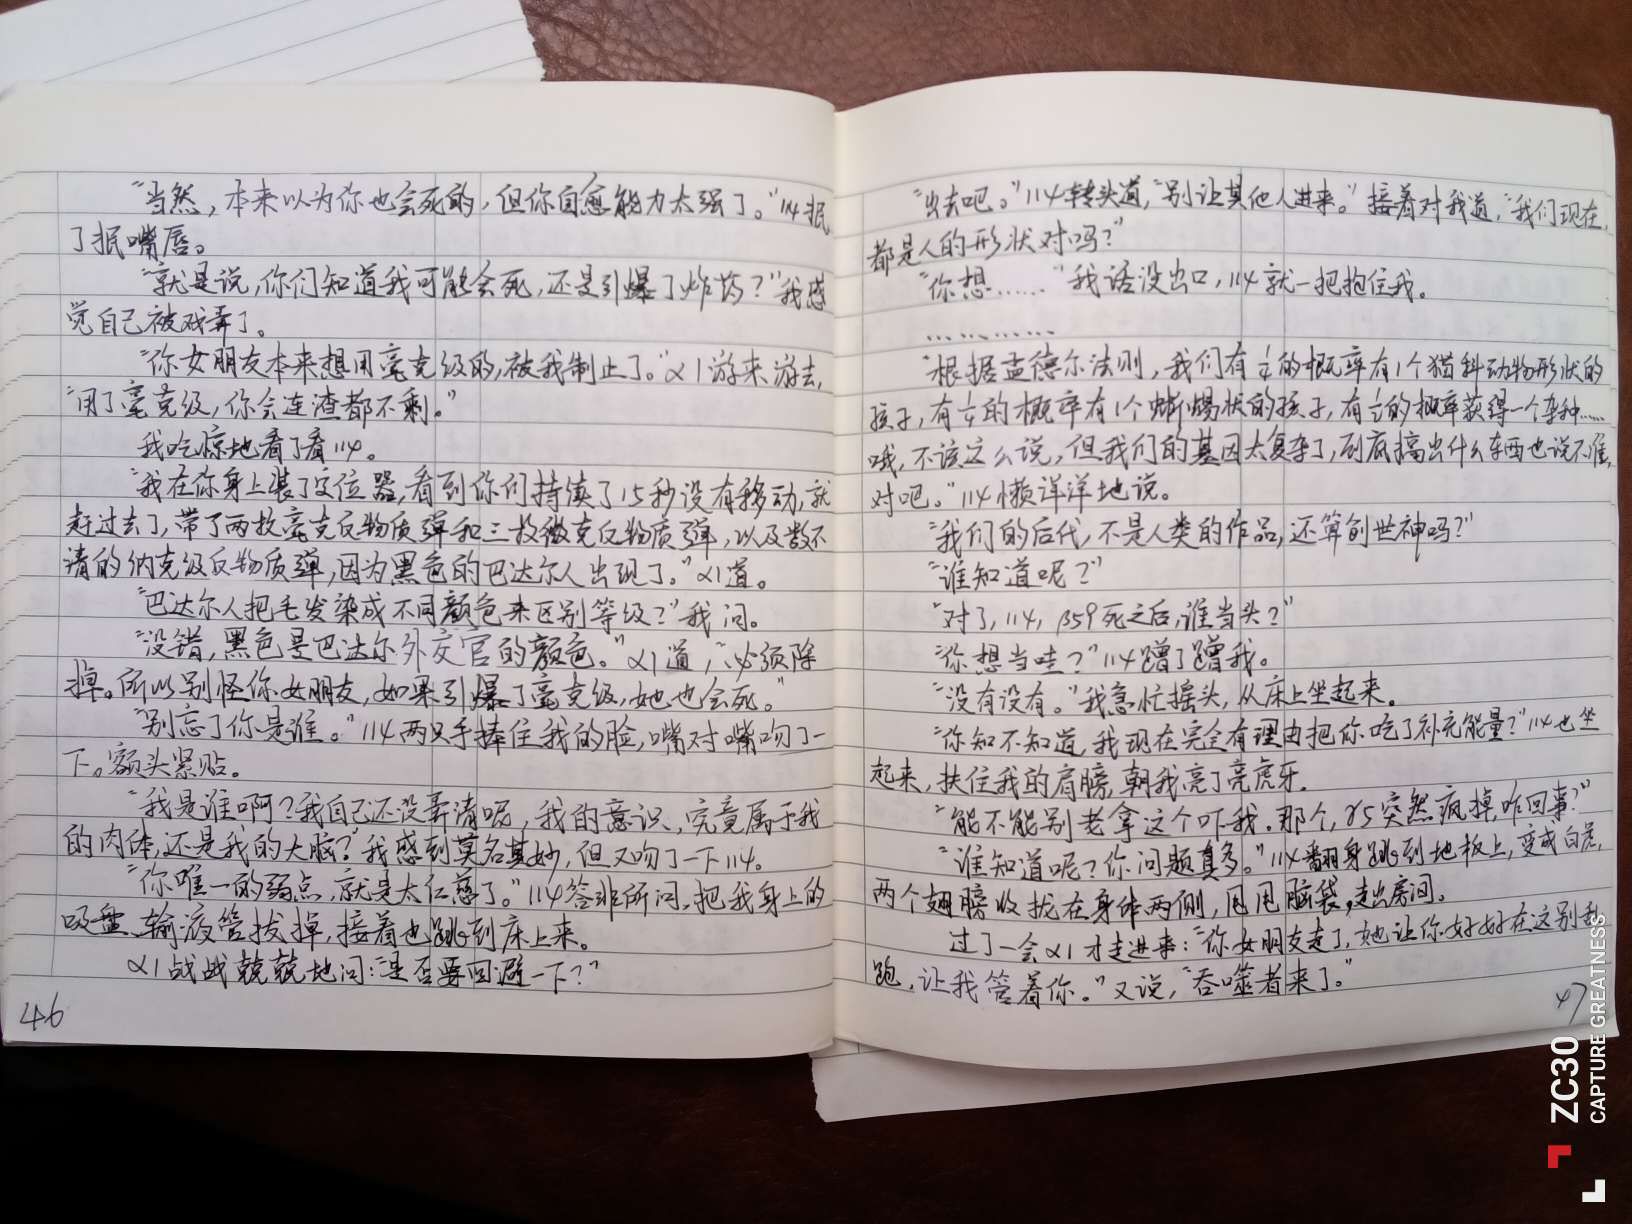 “当然，本来以为你也会死的，但你自愈能力太强了。”114抿
了抿嘴唇。
“就是说，你们知道我可能会死，还是引爆了炸药？”我感
觉自己被戏弄了。
“你女朋友本来想用毫克级的，被我制止了。”α1游来游去，
“用了毫克级，你会连渣都不剩。”
我吃惊地看了看114。
“我在你身上装了定位器，看到你们持续了15秒没有移动，就
赶过去了，带了两枚毫克反物质弹和三枚微克反物质弹，以及数不
清的纳克级反物质弹，因为黑色的巴达尔人出现了。”α1道。
“巴达尔人把毛发染成不同颜色来区别等级？”我问。
“没错，黑色是巴达尔外交官的颜色。”α1道，“必须除
掉。所以别怪你女朋友，如果引爆了毫克级，她也会死。”
“别忘了你是谁。”114两只手捧住我的脸，嘴对嘴吻了一
下。额头紧贴。
“我是谁啊？我自己还没弄清呢，我的意识，究竟属于我
的肉体，还是我的大脑？”我感到莫名其妙，但又吻了一下114。
“你唯一的弱点，就是太仁慈了。”114答非所问，把我身上的
吸盘、输液管拔掉，接着也跳到床上来。
α1战战兢兢地问：“是否要回避一下？”
46
“出去吧。”114转头道，“别让其他人进来。”接着对我道，“我们现在，
都是人的形状对吗？”
“你想……”我话没出口，114就一把抱住我。
…………
“根据孟德尔法则，我们有¼的概率有1个猫科动物形状的
孩子，有¼的概率有1个蜥蜴状的孩子，有½的概率获得一个杂种……
哦，不该这么说，但我们的基因太复杂了，到底搞出什么东西也说不准，
对吧。”114懒洋洋地说。
“我们的后代，不是人类的作品，还算创世神吗？”
“谁知道呢？”
“对了，114，β59死之后，谁当头？”
“你想当哇？”114蹭了蹭我。
“没有没有。”我急忙摇头，从床上坐起来。
“你知不知道，我现在完全有理由把你吃了补充能量？”114也坐
起来，扶住我的肩膀，朝我亮了亮虎牙。
“能不能别老拿这个吓我。那个，γ5突然疯掉，咋回事？”
“谁知道呢？你问题真多。”114翻身跳到地板上，变成白虎，
两个翅膀收拢在身体两侧，甩甩脑袋，走出房间。
过了一会α1才走进来：“你女朋友走了，她让你好好在这别乱
跑，让我管着你。”又说，“吞噬者来了。”
47
ZC30
CAPTURE GREATNESS